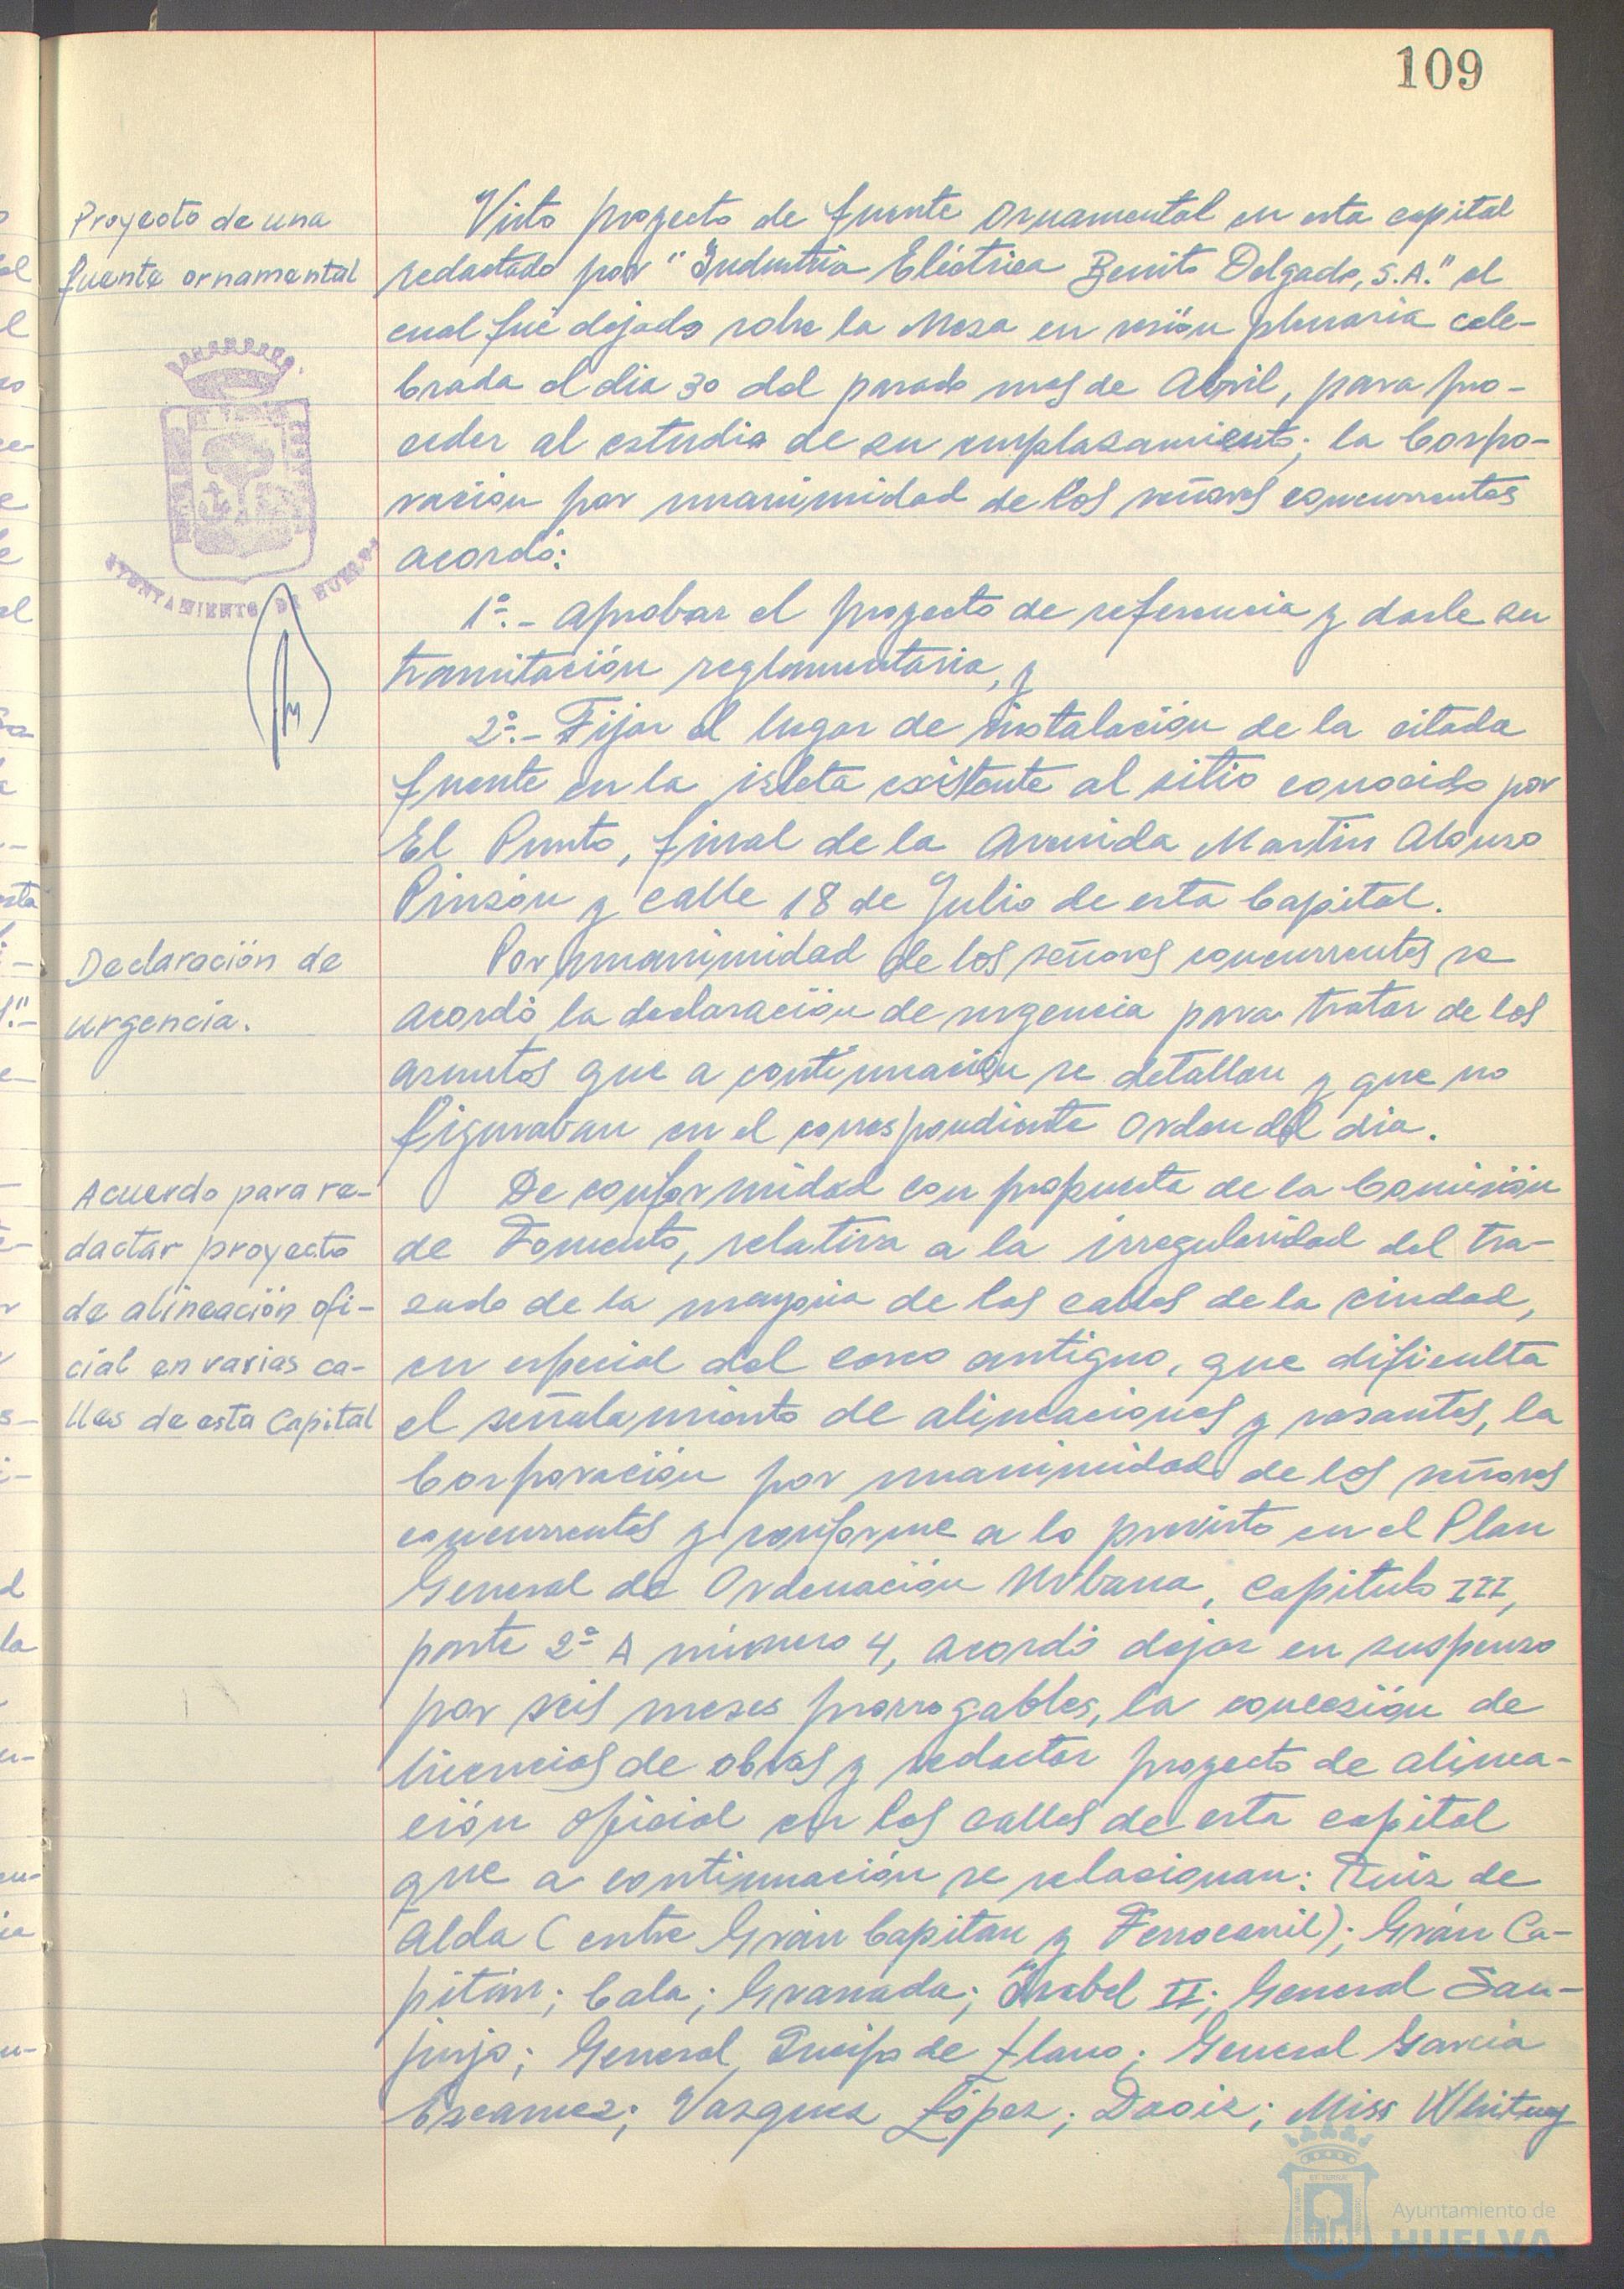 109
Proyecto de una
fuente ornamental
Visto proyecto de fuente ornamental en esta capital
redactado por "Industria Eléctrica Benito Delgado, S.A." el
cual fué dejado sobre la Mesa en sesión plenaria cele-
brada el dia 30 del pasado mes de Abril, para pro-
ceder al estudio de su emplazamiento; la Corpo-
ración por unanimidad de los señores concurrentes
acordó:
AYUNTAMIENTO DE HUELVA
1º.- Aprobar el proyecto de referencia y darle su
tramitación reglamentaria, y
2º.- Fijar el lugar de instalación de la citada
fuente en la isleta existente al sitio conocido por
El Punto, final de la Avenida Martin Alonso
Pinzón y calle 18 de Julio de esta Capital.
Declaración de
urgencia.
Por unanimidad de los señores concurrentes se
acordó la declaración de urgencia para tratar de los
asuntos que a continuación se detallan y que no
figuraban en el correspondiente Orden del dia.
Acuerdo para re-
dactar proyecto
de alineación ofi-
cial en varias ca-
lles de esta Capital
De conformidad con propuesta de la Comisión
de Fomento, relativa a la irregularidad del tra-
zado de la mayoria de las calles de la ciudad,
en especial del casco antiguo, que dificulta
el señalamiento de alineaciones y rasantes, la
Corporación por unanimidad de los señores
concurrentes y conforme a lo previsto en el Plan
General de Ordenación Urbana, Capitulo III,
parte 2ª A número 4, acordó dejar en suspenso
por seis meses prorrogables, la concesión de
licencias de obras y redactar proyecto de alinea-
ción oficial en las calles de esta capital
que a continuación se relacionan: Ruiz de
Alda (entre Grán Capitan y Ferrocarril); Grán Ca-
pitán; Cala; Granada; Isabel II; General San-
jurjo; General Queipo de Llano; General Garcia
Escamez; Vazquez López; Daoiz; Miss Whitney
Ayuntamiento de
HUELVA